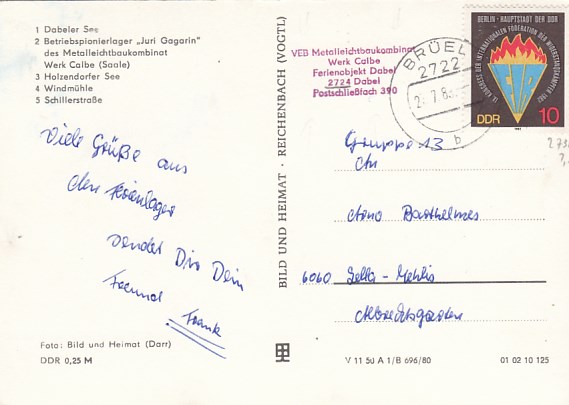 1 Dabeler See
2 Betriebspionierlager „Juri Gagarin"
des Metalleichtbaukombinat
Werk Calbe (Saale)
3 Holzendorfer See
4 Windmühle
5 Schillerstraße
Viele Grüße aus
dem Ferienlager
sendet Dir Dein
Freund
Frank
Foto: Bild und Heimat (Darr)
DDR 0,25 M
BILD UND HEIMAT · REICHENBACH (VOGTL)
VEB Metalleichtbaukombinat
Werk Calbe
Ferienobjekt Dabel
2724 Dabel
Postschließfach 390
BRÜEL
2722
b
BERLIN - HAUPTSTADT DER DDR
IX. KONGRESS DER INTERNATIONALEN FÖDERATION DER WIDERSTANDSKÄMPFER 1982
FIR
DDR 10
1982
Gruppe 13
An
Barthelmes
6060 Zella-Mehlis
V 11 50 A 1/B 696/80
01 02 10 125